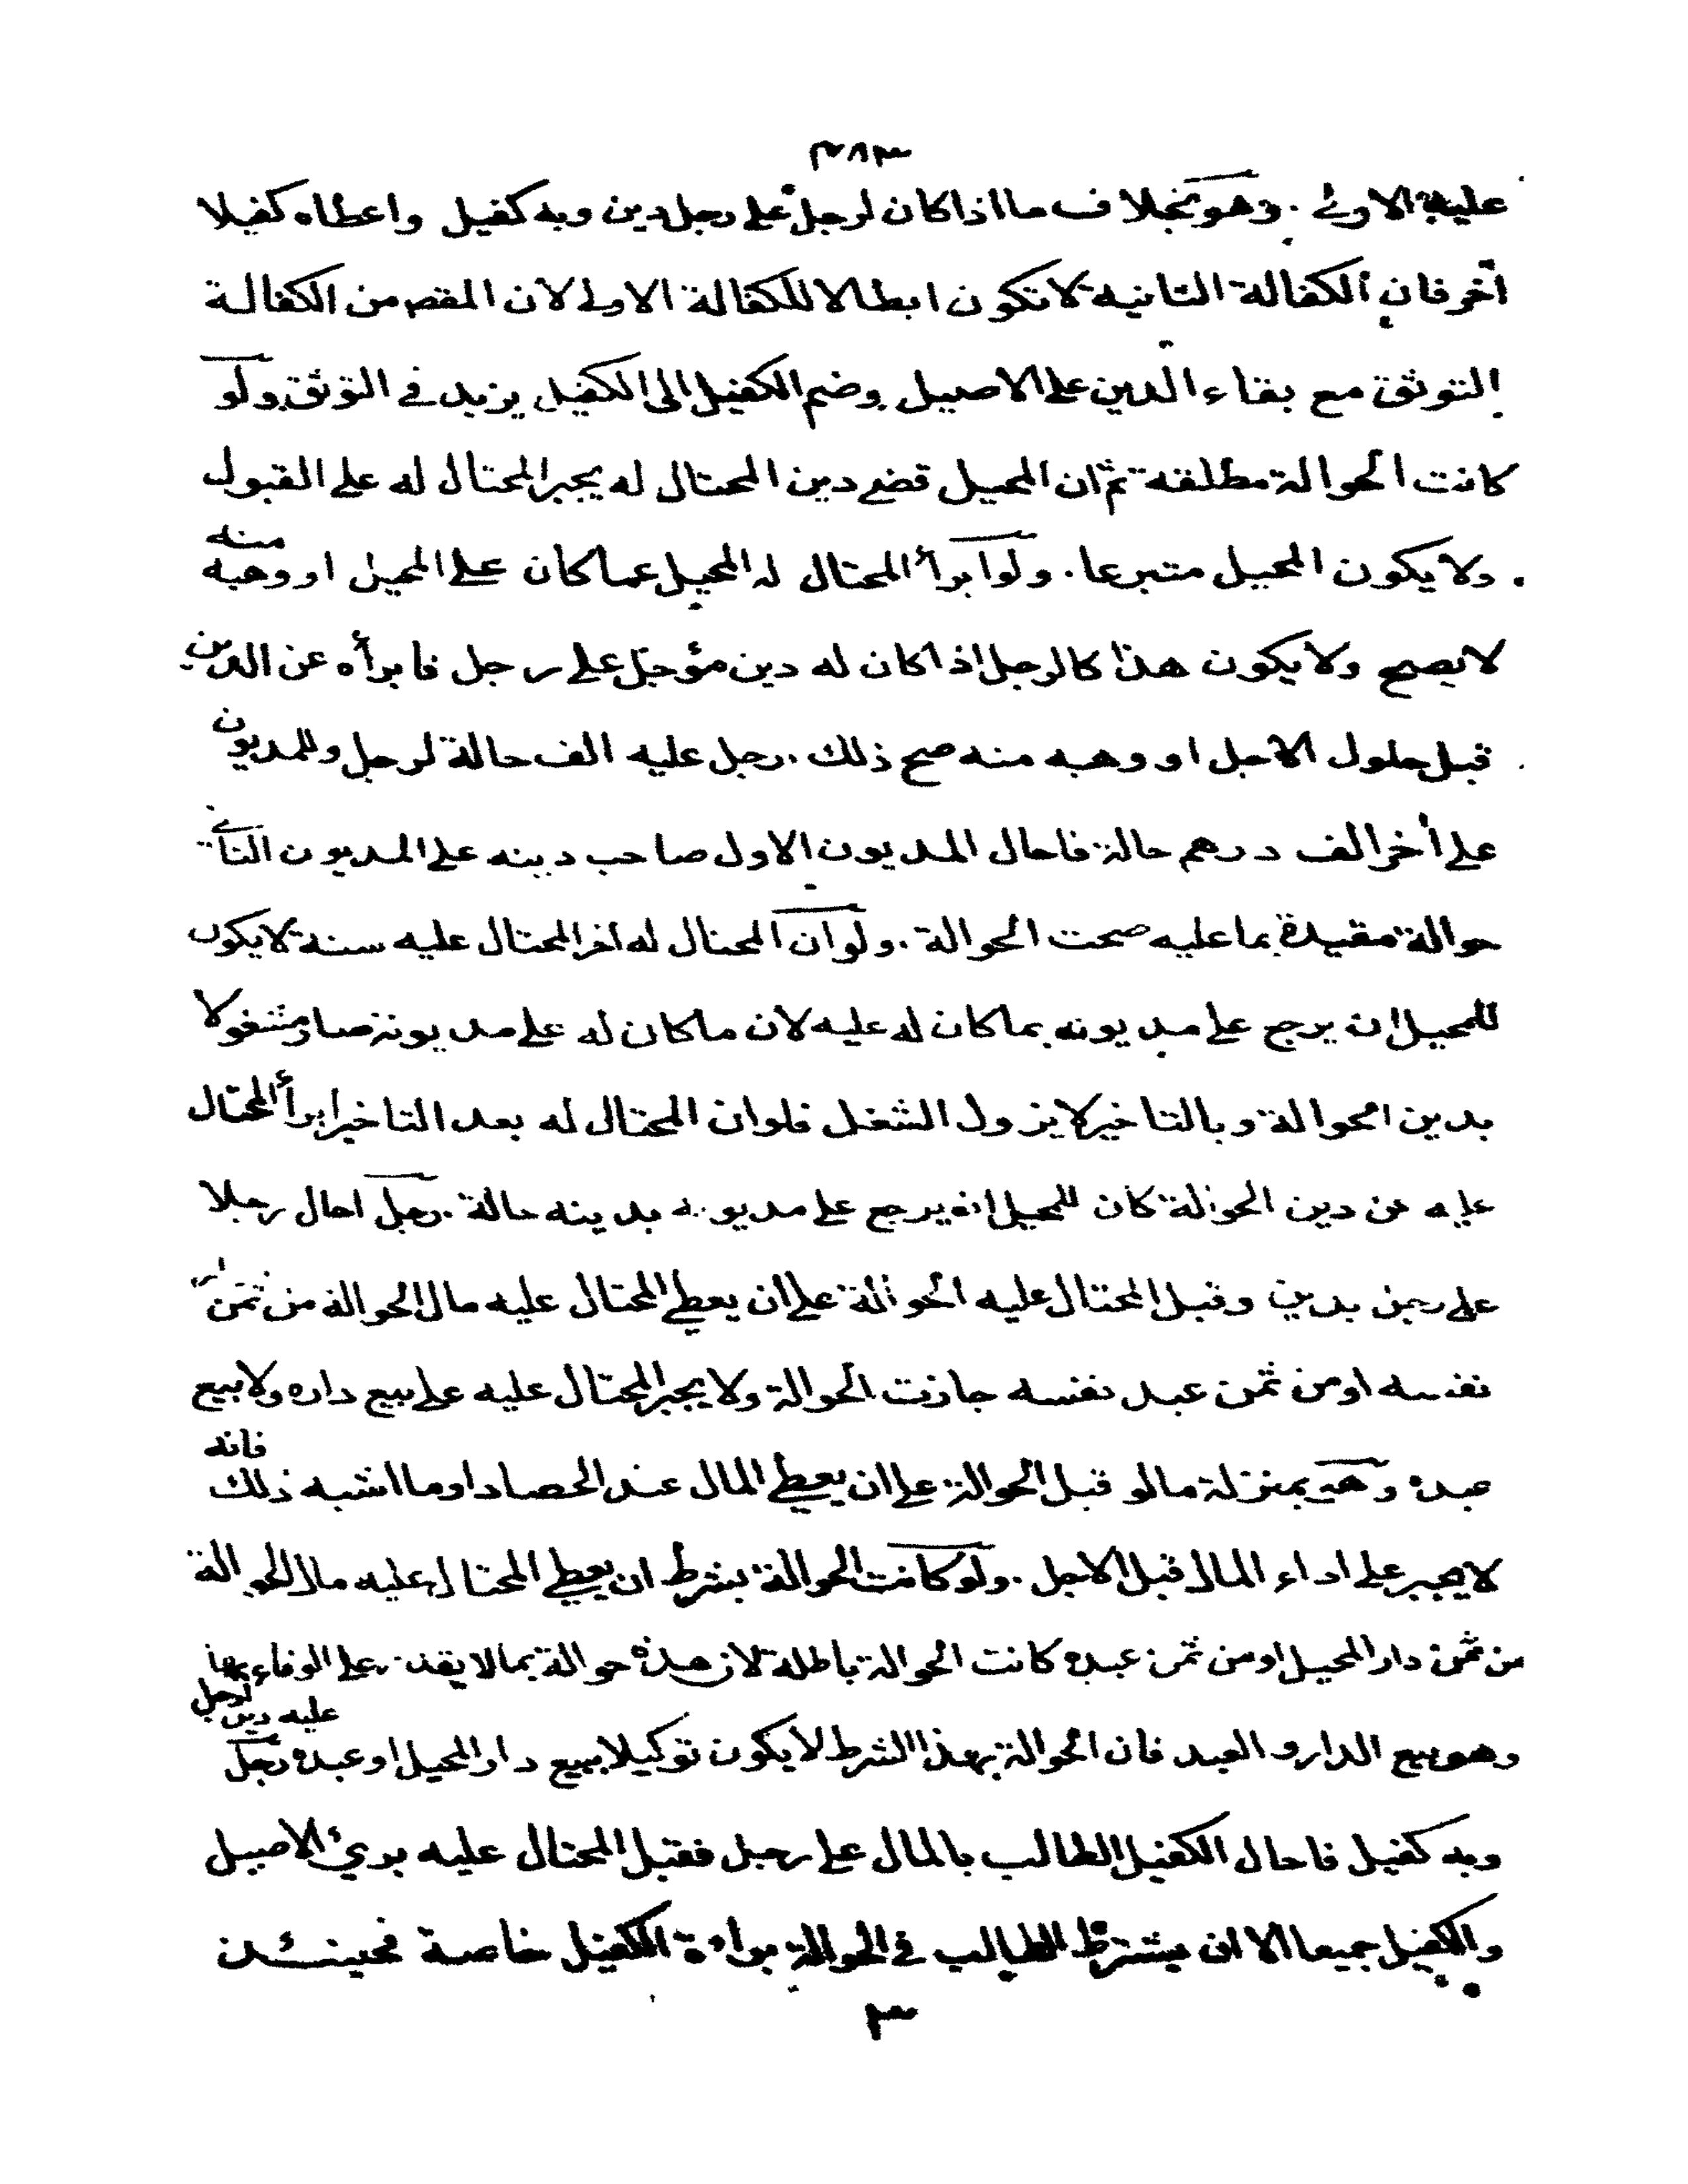 ٣٨٣
عليه الاولى . وهو بخلاف ما اذا كان لرجل على رجل دين وبه كفيل واعطاه كفيلا
آخر فان الكفالة الثانيه لا تكون ابطالا للكفالة الاولى لان المقصم من الكفالة
التوثق مع بقاء الدين على الاصيل وضم الكفيل الى الكفيل يزيد في التوثق ولو
كانت الحوالة مطلقة ثم ان المحيل قضى دين المحتال له يجبر المحتال له على القبول
ولا يكون المحيل متبرعا . ولو ابرأ المحتال له المحيل عما كان على المحيل او وهبه منه
لا يصح ولا يكون هذا كالرجل اذا كان له دين مؤجل على رجل فابرأه عن الدين
قبل حلول الاجل او وهبه منه صح ذلك . رجل عليه الف حالة لرجل وللمديون
على أخر الف درهم حالة فاحال المديون الاول صاحب دينه على المديون الثاني
حوالة مقيدة بما عليه صحت الحوالة . ولو ان المحتال له اخر المحتال عليه سنة لا يكون
للمحيل ان يرجع على مديونه بما كان له عليه لان ما كان له على مديونه صار مشغولا
بدين الحوالة وبالتاخير لا يزول الشغل فلو ان المحتال له بعد التاخير ابرأ المحتال
عليه عن دين الحوالة كان للمحيل ان يرجع على مديونه بدينه حالة . رجل احال رجلا
على رجل بدين وقبل المحتال عليه الحوالة على ان يعطى المحتال عليه مال الحوالة من ثمن دار
نفسه او من ثمن عبد نفسه جازت الحوالة ولا يجبر المحتال عليه على بيع داره ولا بيع
عبده وهو بمنزلة ما لو قبل الحوالة على ان يعطى المال عند الحصاد او ما اشبه ذلك فانه
لا يجبر على اداء المال قبل الاجل . ولو كانت الحوالة بشرط ان يعطى المحتال عليه مال الحوالة
من ثمن دار المحيل او من ثمن عبده كانت الحوالة باطلة لان هذه حوالة بما لا يقدر على الوفاء بها
وهو بيع الدار و العبد فان الحوالة بهذا الشرط لا يكون توكيلا ببيع دار المحيل او عبده رجل عليه دين لرجل
وبه كفيل فاحال الكفيل الطالب بالمال على رجل فقبل المحتال عليه برئ الاصيل
والكفيل جميعا الا ان يشترط الطالب في الحوالة براءة الكفيل خاصة فحينئذ